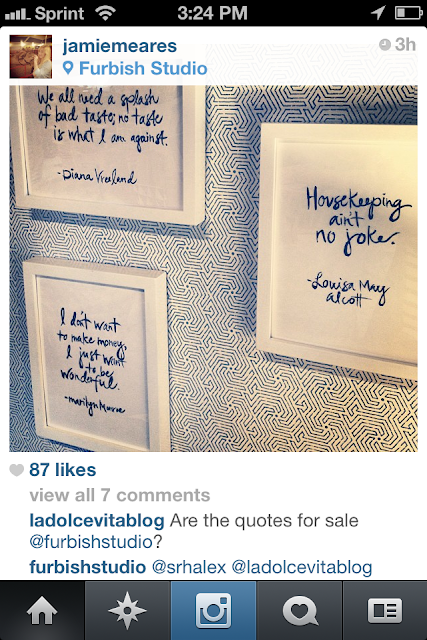 Sprint 3:24 PM
jamiemeares 3h
Furbish Studio
We all need a splash
of bad taste; no taste
is what I am against.
-Diana Vreeland
Housekeeping
ain't
no joke.
-Louisa May
alcott
I don't want
to make money,
I just want
to be
wonderful.
-marilyn Munroe
87 likes
view all 7 comments
ladolcevitablog Are the quotes for sale
@furbishstudio?
furbishstudio @srhalex @ladolcevitablog